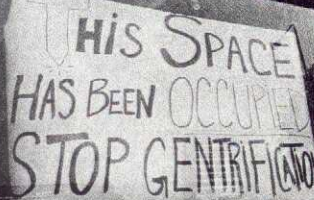 THiS SPACE
HAS BEEN OCCUPIED
STOP GENTRiFiCATiO